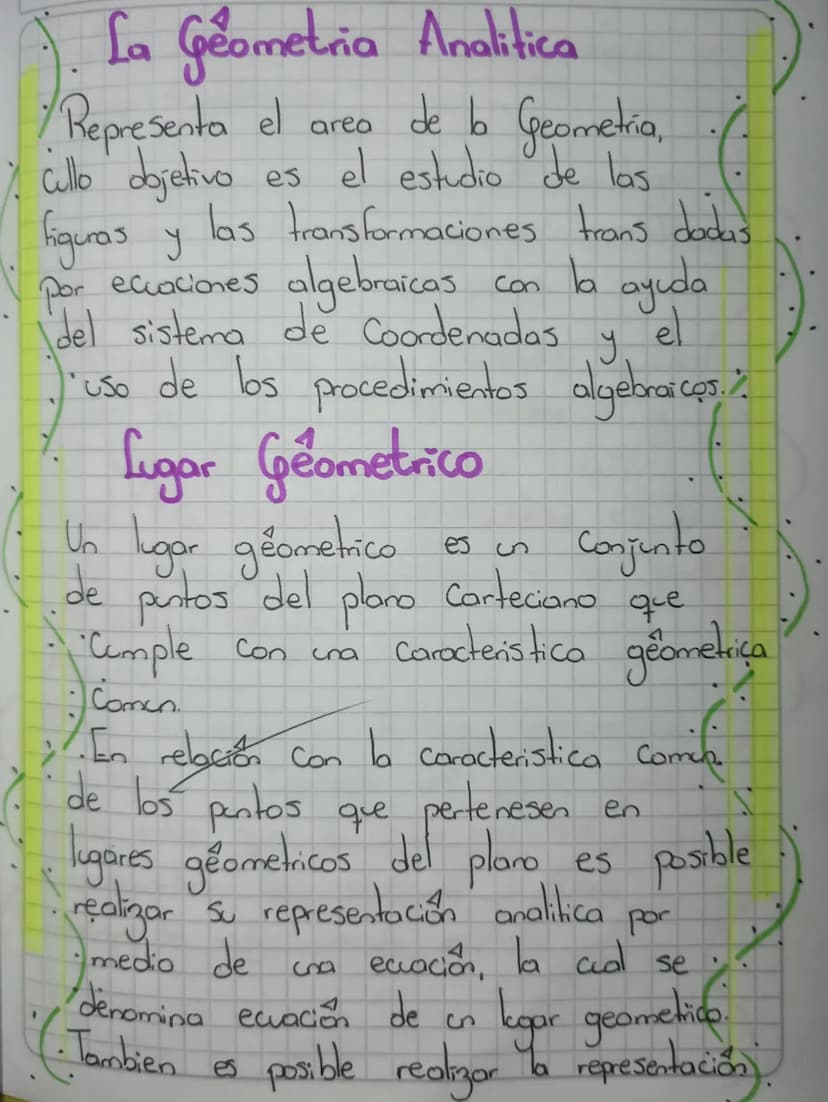 La Geometria Analitica
Representa el area de la Geometria,
cullo dojetivo es el estudio de las
figuras y las transformaciones trans dadas
por ecuaciones algebraicas con la ayuda
del sistema de Coordenadas y el
uso de los procedimientos algebraicos.
Lugar Geómetrico
Un lugar géometrico es un Conjunto
de puntos del plano Carteciano que
Cumple con una caracteristica géometrica
Comun.
En relación con la caracteristica comun
de los puntos que pertenesen en
lugares géometricos del plano es posible
realizar su representación analitica por
medio de una ecuación, la cual se
denomina ecuación de un lugar geometrico.
Tambien es posible realizar la representación